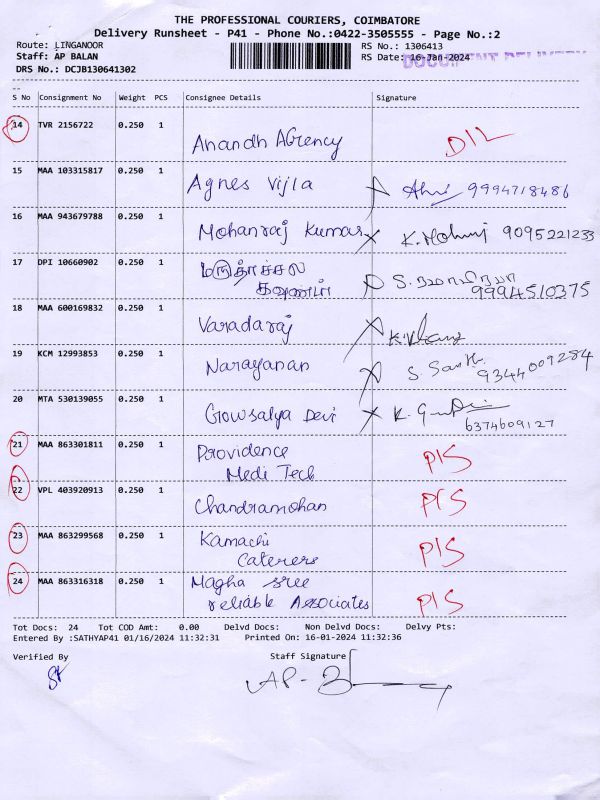 THE PROFESSIONAL COURIERS, COIMBATORE
Delivery Runsheet - P41 - Phone No.:0422-3505555 - Page No.:2
Route: LINGANOOR
RS No.: 1306413
Staff: AP BALAN
RS Date: 16-Jan-2024
DOCUMENT DELIVERY
DRS No.: DCJB130641302
S No Consignment No Weight PCS Consignee Details Signature
14 TVR 2156722 0.250 1 Anandh Agency D/L
15 MAA 103315817 0.250 1 Agnes Vijla 9994718486
16 MAA 943679788 0.250 1 Mohanraj Kumar K. Mohanraj 9095221233
17 DPI 10660902 0.250 1 மருதாச்சல
கவுண்டர் 9994510375
18 MAA 600169832 0.250 1 Varadaraj
19 KCM 12993853 0.250 1 Narayanan 9344009284
20 MTA 530139055 0.250 1 Gowsalya Devi
6374609127
21 MAA 863301811 0.250 1 Providence
Medi Tech PIS
22 VPL 403920913 0.250 1 Chandramohan PIS
23 MAA 863299568 0.250 1 Kamachi
Caterers PIS
24 MAA 863316318 0.250 1 Magha Sree
reliable Associates PIS
Tot Docs: 24 Tot COD Amt: 0.00 Delvd Docs: Non Delvd Docs: Delvy Pts:
Entered By :SATHYAP41 01/16/2024 11:32:31 Printed On: 16-01-2024 11:32:36
Verified By Staff Signature
AP-B